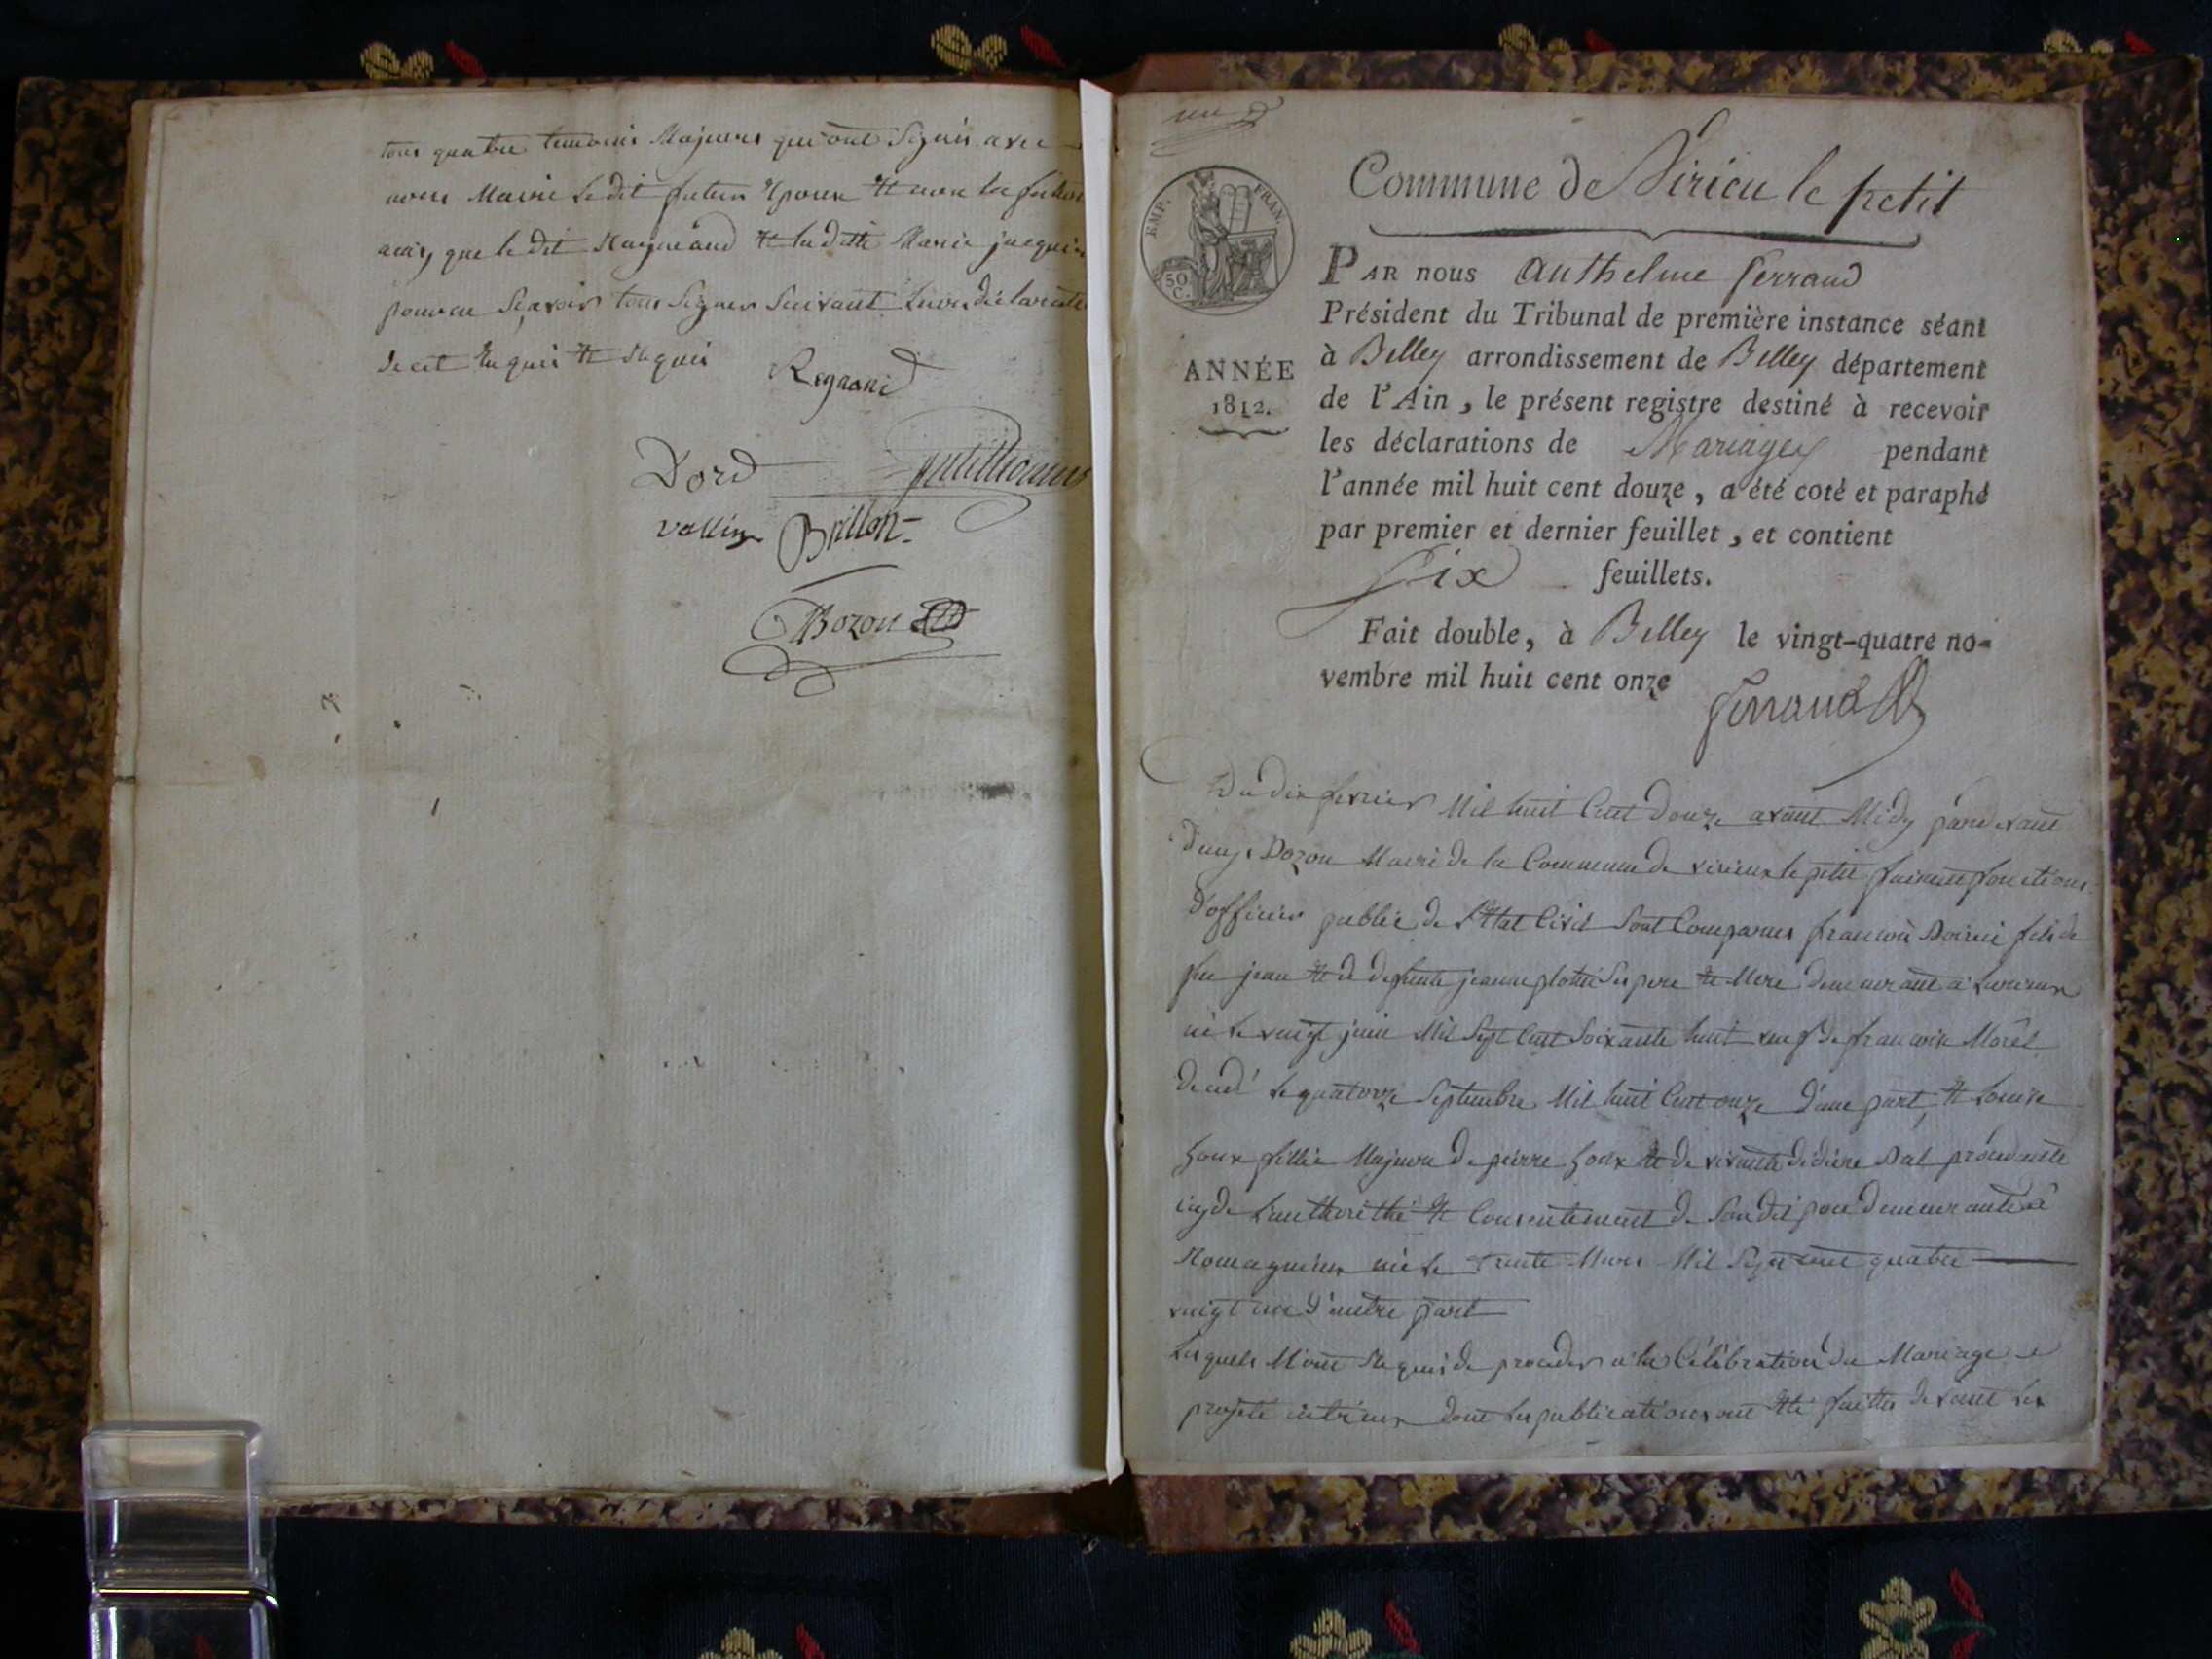 tous quatre temoins Majeurs qui ont Signés avec
nous Maire Le dit futur Epoux Et non la future
que le dit Et la ditte Marie
Sçavoir tous Signer Suivant
de cet Enquis Et Requis
Regnand
Dord
Vallin Brillon
Bozon
un
EMP. FRAN.
50 C.
ANNÉE
1812.
Commune de Virieu le petit
PAR nous Anthelme Ferrand
Président du Tribunal de première instance séant
à Belley arrondissement de Belley département
de l'Ain, le présent registre destiné à recevoir
les déclarations de Mariages pendant
l'année mil huit cent douze, a été coté et paraphé
par premier et dernier feuillet, et contient
Six feuillets.
Fait double, à Belley le vingt-quatre no-
vembre mil huit cent onze
Ferrand
Du dix fevrier Mil huit Cent Douze avant Midy pardevant
Bozon Maire de la Commune de virieux le petit faisant fonctions
d'officier public de l'Etat Civil Sont Comparus francois fils de
feu jean Et de deffunte jeanne Ses pere Et Mere demeurant a
né le vingt juin Mil Sept Cent Soixante huit veuf de francoise Morel
decedé Le quatorze Septembre Mil huit Cent onze d'une part, Et Louise
fillie Majeure de pierre Et de vivante didière procedante
icy de L'authorithé Et Consentement de Son dit pere demeurante a
née le trente Mars Mil Sept cent quatre
vingt un d'autre part
Lesquels M'ont Requis de proceder a la Célébration du Mariage
projeté entr'eux dont Les publications ont Eté faittes devant Les